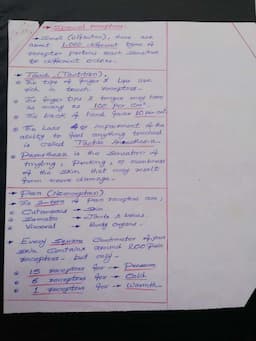 → Smell (olfaction), there are
about 1,000 different types of
receptor proteins each sensitive
to different odors.
→ Touch (Tactition),
The tips of finger & lips are
rich in touch receptors.
The finger tips & tongue may have
as many as 100 per cm².
The back of hand fewer 10 per cm².
The Loss & or impairment of the
ability to feel anything touched
is called Tactile Anesthesia.
Paresthesia is the sensation of
tingling, pricking, or numbness
of the skin that may result
from nerve damage.
→ Pain (Nociception)
The 3-types of pain receptors are,
Cutaneous → Skin
Somatic → Joints & bones
Visceral → Body organs.
→ Every Square Centimeter of your
skin contains around 200 pain
receptors. but only -
15 receptors for → Pressure
6 receptors for → Cold
1 receptors for → Warmth